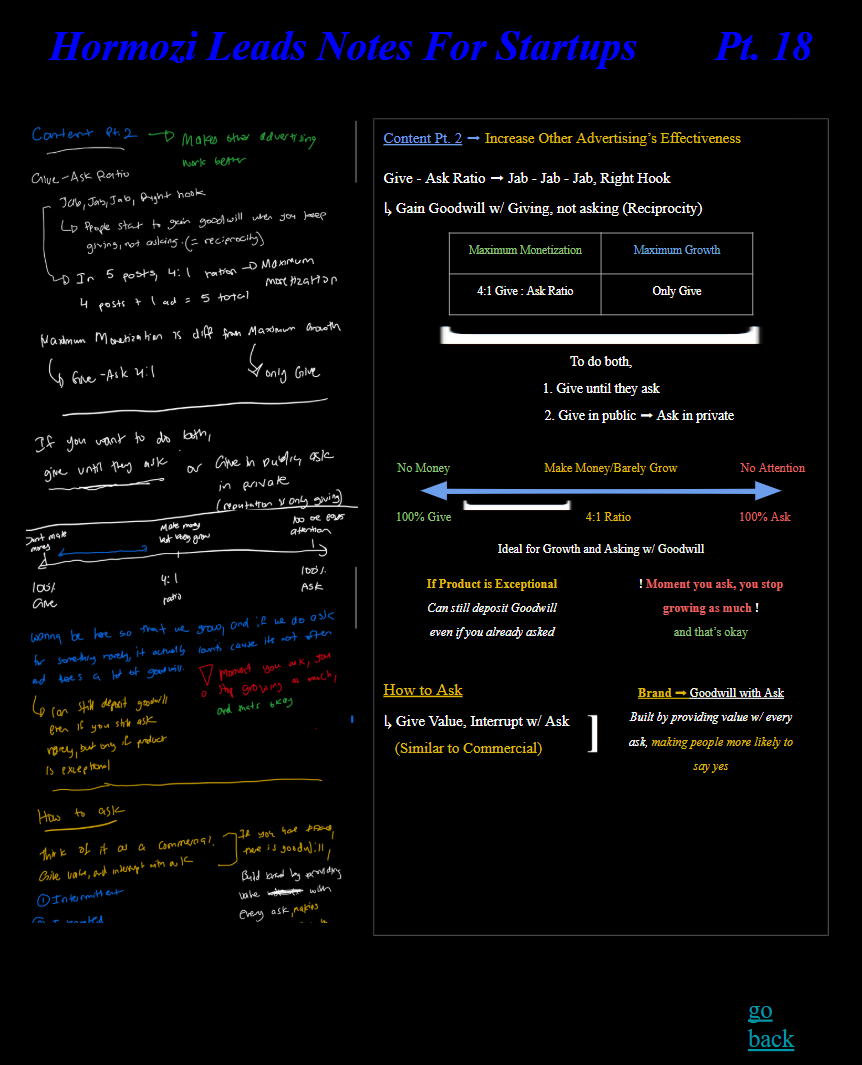 Hormozi Leads Notes For Startups Pt. 18
Content Pt. 2 → Makes other advertising
work better
Give - Ask Ratio
Jab, Jab, Jab, Right hook
↳ People start to gain goodwill when you keep
giving, not asking. (= reciprocity)
→ In 5 posts, 4:1 ration → Maximum
monetization
4 posts + 1 ad = 5 total
Maximum Monetization is diff from Maximum Growth
↳ Give - Ask 4:1
↳ only Give
If you want to do both,
give until they ask or Give in public, ask
in private
(reputation is only giving)
Don't make
money
Make money
but barely grow
attention
100%
Give
4:1
ratio
100%
Ask
wanna be here so that we grow, and if we do ask
for something rarely, it actually counts cause its not often
and has a lot of goodwill.
▽ Moment you ask, you
stop growing as much,
and thats okay
↳ Can still deposit goodwill
even if you still ask
rarely, but only if product
is exceptional
How to ask
Think of it as a commercial.
Give value, and interrupt with ask
① Intermittent
② Integrated
If you have
there is goodwill,
Build brand by providing
value with
every ask, making
Content Pt. 2 → Increase Other Advertising's Effectiveness
Give - Ask Ratio → Jab - Jab - Jab, Right Hook
↳ Gain Goodwill w/ Giving, not asking (Reciprocity)
Maximum Monetization Maximum Growth
4:1 Give : Ask Ratio Only Give
To do both,
1. Give until they ask
2. Give in public → Ask in private
No Money Make Money/Barely Grow No Attention
100% Give 4:1 Ratio 100% Ask
Ideal for Growth and Asking w/ Goodwill
If Product is Exceptional
Can still deposit Goodwill
even if you already asked
! Moment you ask, you stop
growing as much !
and that's okay
How to Ask
↳ Give Value, Interrupt w/ Ask
(Similar to Commercial)
Brand → Goodwill with Ask
Built by providing value w/ every
ask, making people more likely to
say yes
go
back